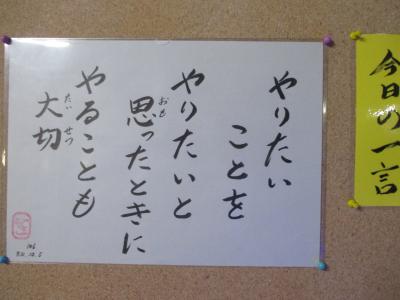 今日の一言
やりたい
ことを
やりたいと
思ったときに
おも
やることも
大切
たいせつ